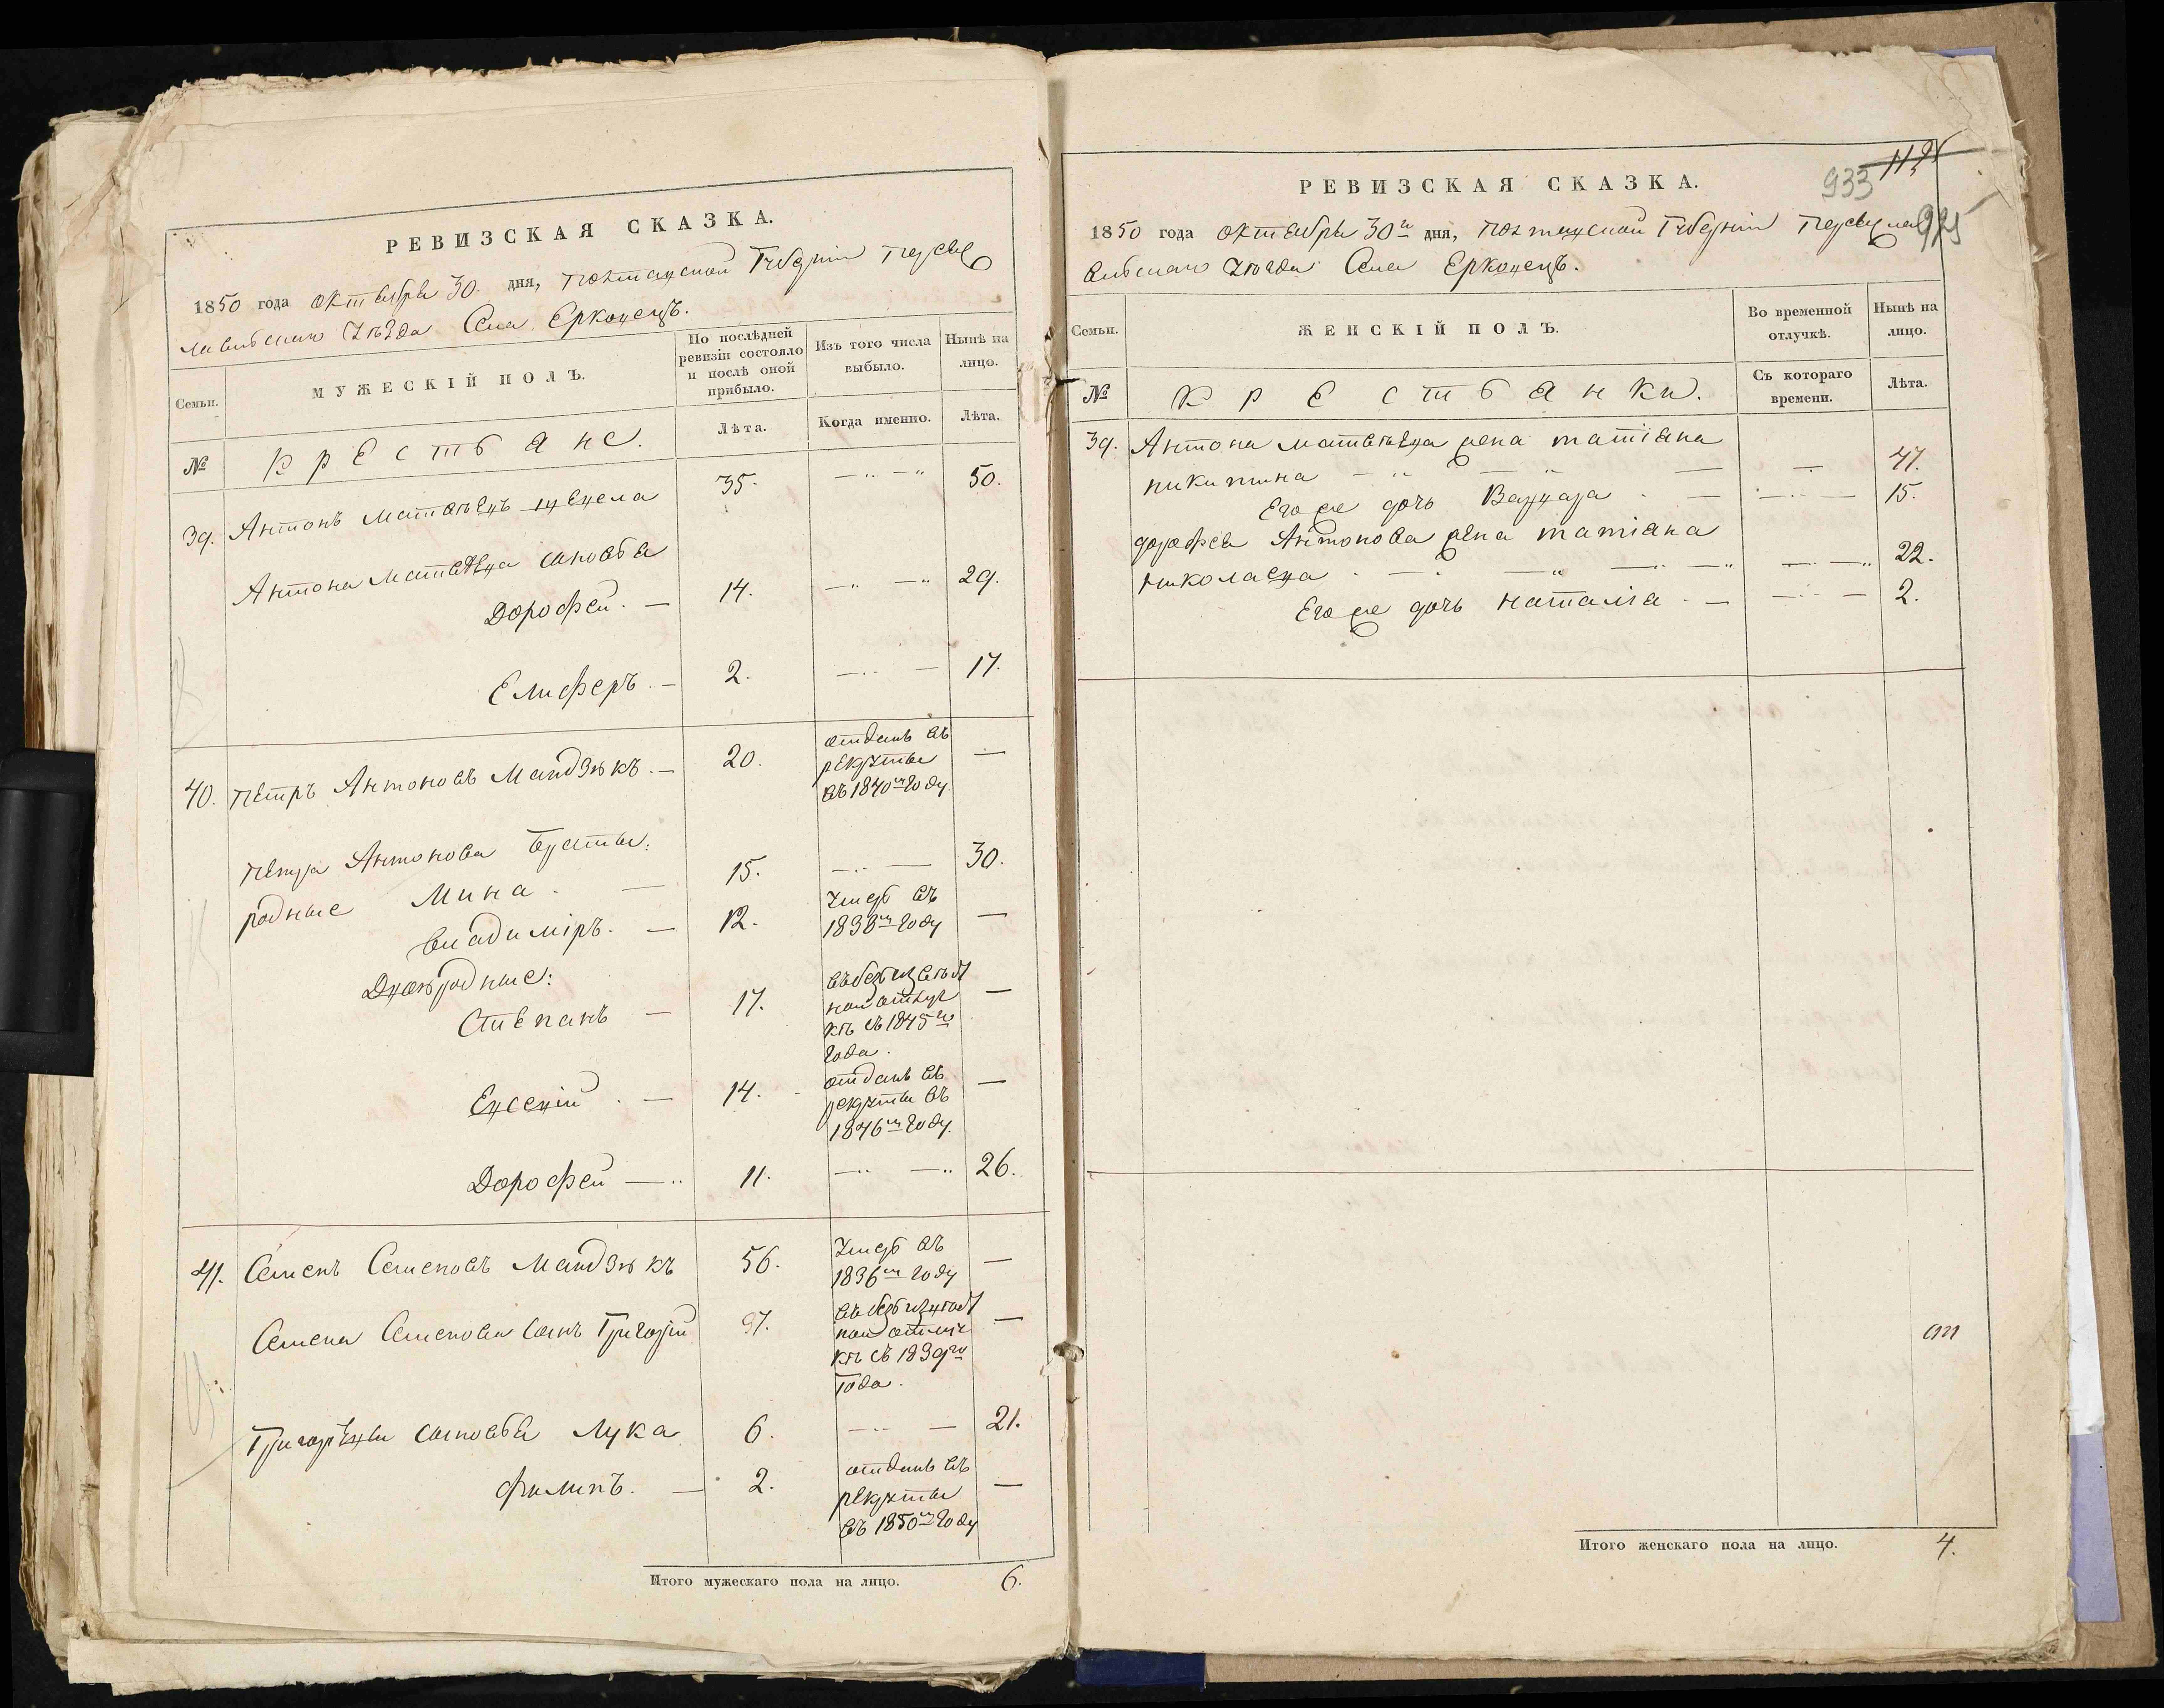 РЕВИЗСКАЯ СКАЗКА.
1850 года октября 30. дня, Полтавской Губерніи Переяс
лавскаго Уѣзда Села Ерковецъ.
Семьи.
МУЖЕСКІЙ ПОЛЪ.
По послѣдней ревизіи состояло и послѣ оной прибыло.
Изъ того числа выбыло.
Нынѣ на лицо.
№
Крестьяне.
Лѣта.
Когда именно.
Лѣта.
39. Антонъ Матвѣевъ 35. 50.
Антона Матвѣева сыновья
Дорофей. 14. 29.
Елиферъ. 2. 17.
40. Петръ Антоновъ Мандзюкъ. 20. отданъ въ
рекруты
въ 1840м году
Петра Антонова братья:
родные Мина. 15. 30.
Владиміръ. 12. умеръ въ
1838м году
Двоюродные:
Степанъ 17. въ безъизвѣст
ной отлуч
кѣ съ 1845го
года.
Евсевій. 14. отданъ въ
рекруты въ
1846м году.
Дорофей 11. 26.
41. Семенъ Семеновъ Мандзюкъ 56. умеръ въ
1836м году
Семена Семенова сынъ Григорій 37. въ безъизвѣст
ной отлуч
кѣ съ 1839го
года.
Григорьевы сыновья Лука 6. 21.
Филипъ. 2. отданъ въ
рекруты
въ 1850м году
Итого мужескаго пола на лицо. 6.
933
925
РЕВИЗСКАЯ СКАЗКА.
1850 года октября 30го дня, Полтавской Губерніи Переясла
вскаго Уѣзда Села Ерковецъ.
Семьи.
ЖЕНСКІЙ ПОЛЪ.
Во временной отлучкѣ.
Нынѣ на лицо.
№
Крестьянки.
Съ котораго времени.
Лѣта.
39. Антона Матвѣева жена Татіана
Никитина 47.
Его же дочь Варвара 15.
Дорофея Антонова жена Татіана
Николаева 22.
Его же дочь Наталія 2.
Итого женскаго пола на лицо. 4.